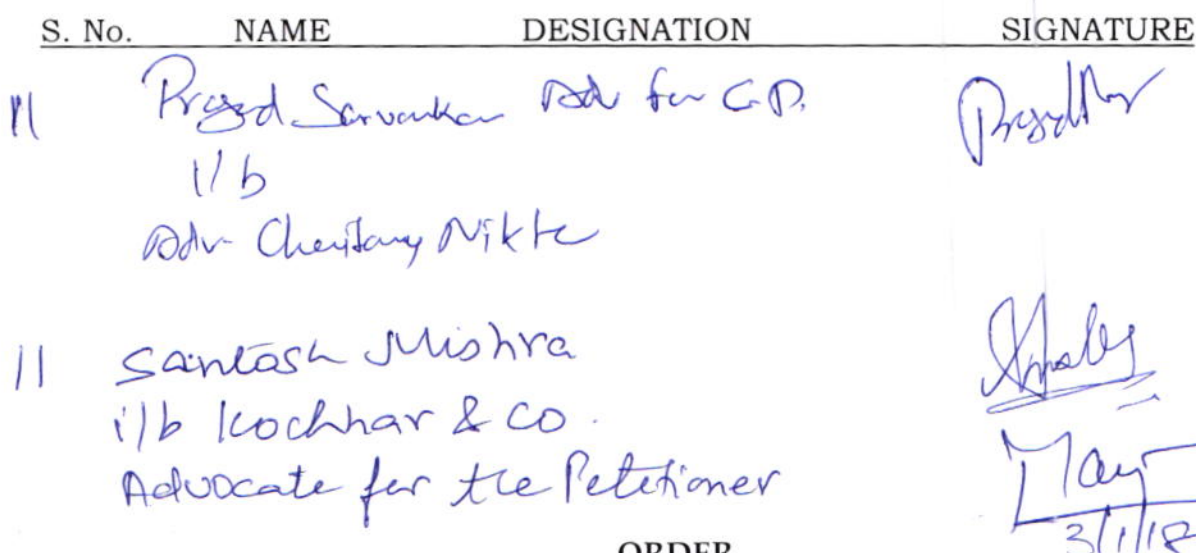 S. No. NAME DESIGNATION SIGNATURE
11 Sarvankar Adv for C.D.
i/b
Adv Nikte
11 Santosh Mishra
i/b Kochhar & Co.
Advocate for the Petitioner
3/1/18
ORDER